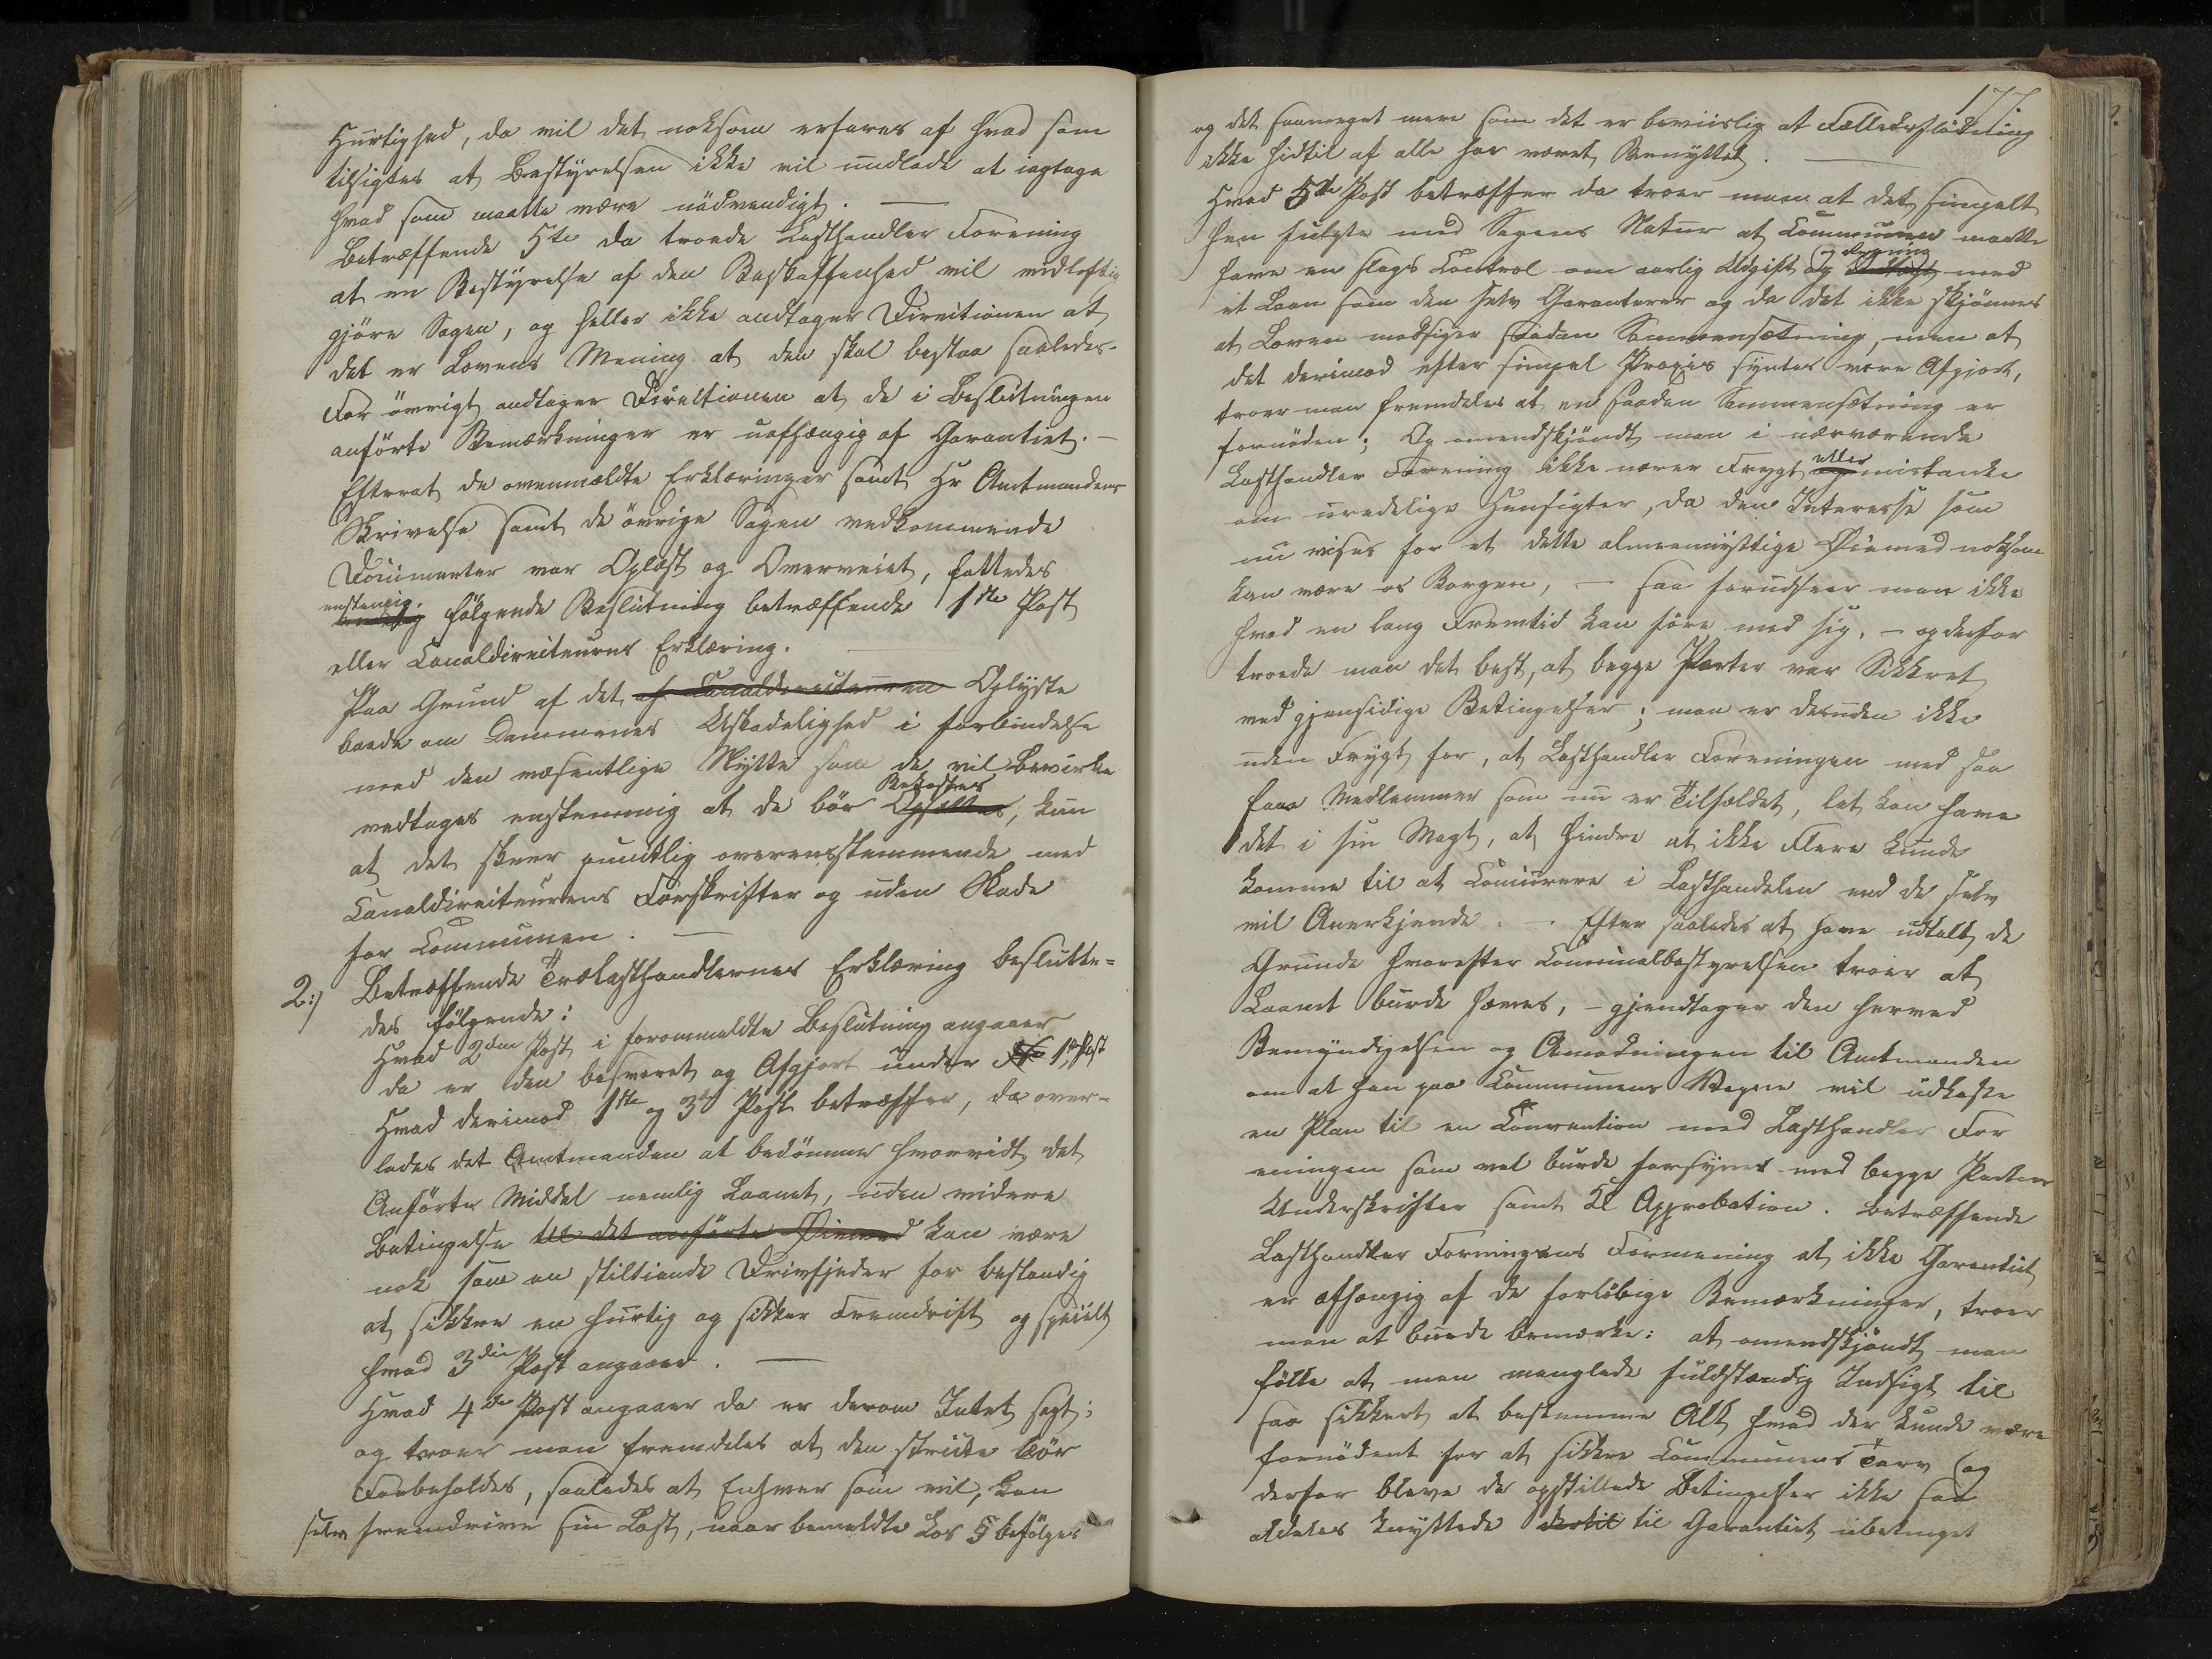 Hurtighed, da vil det noksom erfares af hvad som
tilsigtes at Bestyrelsen ikke vil undlade at iagtage
hvad som maatte være nödvendigt. —
Betræffende 5te da troede Lasthandler Forening
at en Bestyrelse af den Beskaffenhed vil vidløftig
gjöre Sagen, og heller ikke andtager Directionen at
det er Lovens Mening at den skal bestaa saaledes.
For övrigt andtager Direktionen at de i Beslutningen
anförte Bemærkninger er uafhængig af Garantiet. —
Efterat de ovenmældte Erklæringer samt Hr Amtmandens
Skrivelse samt de övrige Sagen vedkommende
Documenter var Oplæst og Overveiet, fattedes
enstemig.
fölgende Beslutning betræffende 1ste Post
eller Canaldirecteurens Erklæring.
Paa Grund af det af Canaldirecteuren Oplyste
baade om Dammenes Uskadelighed i forbindelse
med den væsentlige Nytte som de vil bevirke
Bekostes
vedtages enstemmig at de bör Opsættes, kun
at det skeer punktlig overensstemmende med
Canaldirecteurens Forskrifter og uden Skade
for Communen. —
2:) Betræffende Trælasthandlernes Erklæring beslutte-
des fölgende:
Hvad 2den Post i forommeldte Beslutning angaaer
da er den besvaret og Afgjort under No 1ste Post
Hvad derimod 1ste og 3die Post betræffer, da over-
lades det Amtmanden at bedömme hvorvidt det
Anförte Middel nemlig Laanet, uden videre
Betingelse til det anförte Öiemed kan være
nok som en stiltiende Drivfjeder for bestandig
at sikkre en hurtig og sikker Fremdrift og specielt
hvad 3die Post angaaer. —
Hvad 4de Post angaaer da er derom Intet sagt;
og troer man fremdeles at den stricte bör
Forbeholdes, saaledes at Enhver som vil, kan
selv fremdrive sin Last, naar bemeldte Lov § befölges
177.
og det saameget mere som det er beviislig at Fællesflödning
ikke hidtil af alle har været Benyttet. —
Hvad 5te Post betræffer da troer man at det simpelt
hen fulgte med Sagens Natur at Communen maatte
og
have en slags Control om aarlig Udgift og med
et Laan som den selv Garanterer og da det ikke skjönnes
at Loven modsiger saadan Sammensætning, men at
det derimod efter simpel Praxis syntes være Afgjort,
troer man fremdeles at en saadan Sammensætning er
fornöden; Og omendskjöndt man i nærværende
eller
Lasthandler Forening ikke nærer Frygt og mistanke
om uredelige Hensigter, da den Interesse som
nu vises for et dette almeennyttige Öiemed noksom
kan være os Borgen, — saa forudseer man ikke
hvad en lang Fremtid kan före med sig, — og derfor
troede man det best, at begge Parter var Sikkret
ved gjensidige Betingelser; man er desuden ikke
uden Frygt for, at Lasthandler Foreningen med saa
faae Medlemmer som nu er Tilfældet, let kan have
det i sin Magt, at hindre at ikke Flere kunde
komme til at Concurere i Lasthandelen end de selv
vil Anerkjende. — Efter saaledes at have udtalt de
Grunde hvorefter Communalbestyrelsen troer at
Laanet burde hæves, — gjendtager den herved
Bemyndigelsen og Anmodningen til Amtmanden
om at han paa Communens Vegne vil udkaste
en Plan til en Convention med Lasthandler For
eningen som vel burde forsynes med begge Parters
Underskrifter samt Kl Approbation. Betræffende
Lasthandler Foreningens Formening at ikke Garantiet
er afhængig af de forlöbige Bemærkninger, troer
man at burde bemærke: at omendskjöndt man
fölte at man manglede fuldstændig Indsigt til
saa sikkert at bestemme Alt hvad der kunde være
fornödent for at sikkre Communens Tarv (og
derfor bleve de opstillede Betingelser ikke saa
aldeles knyttede dertil til Garantiet ubetinget